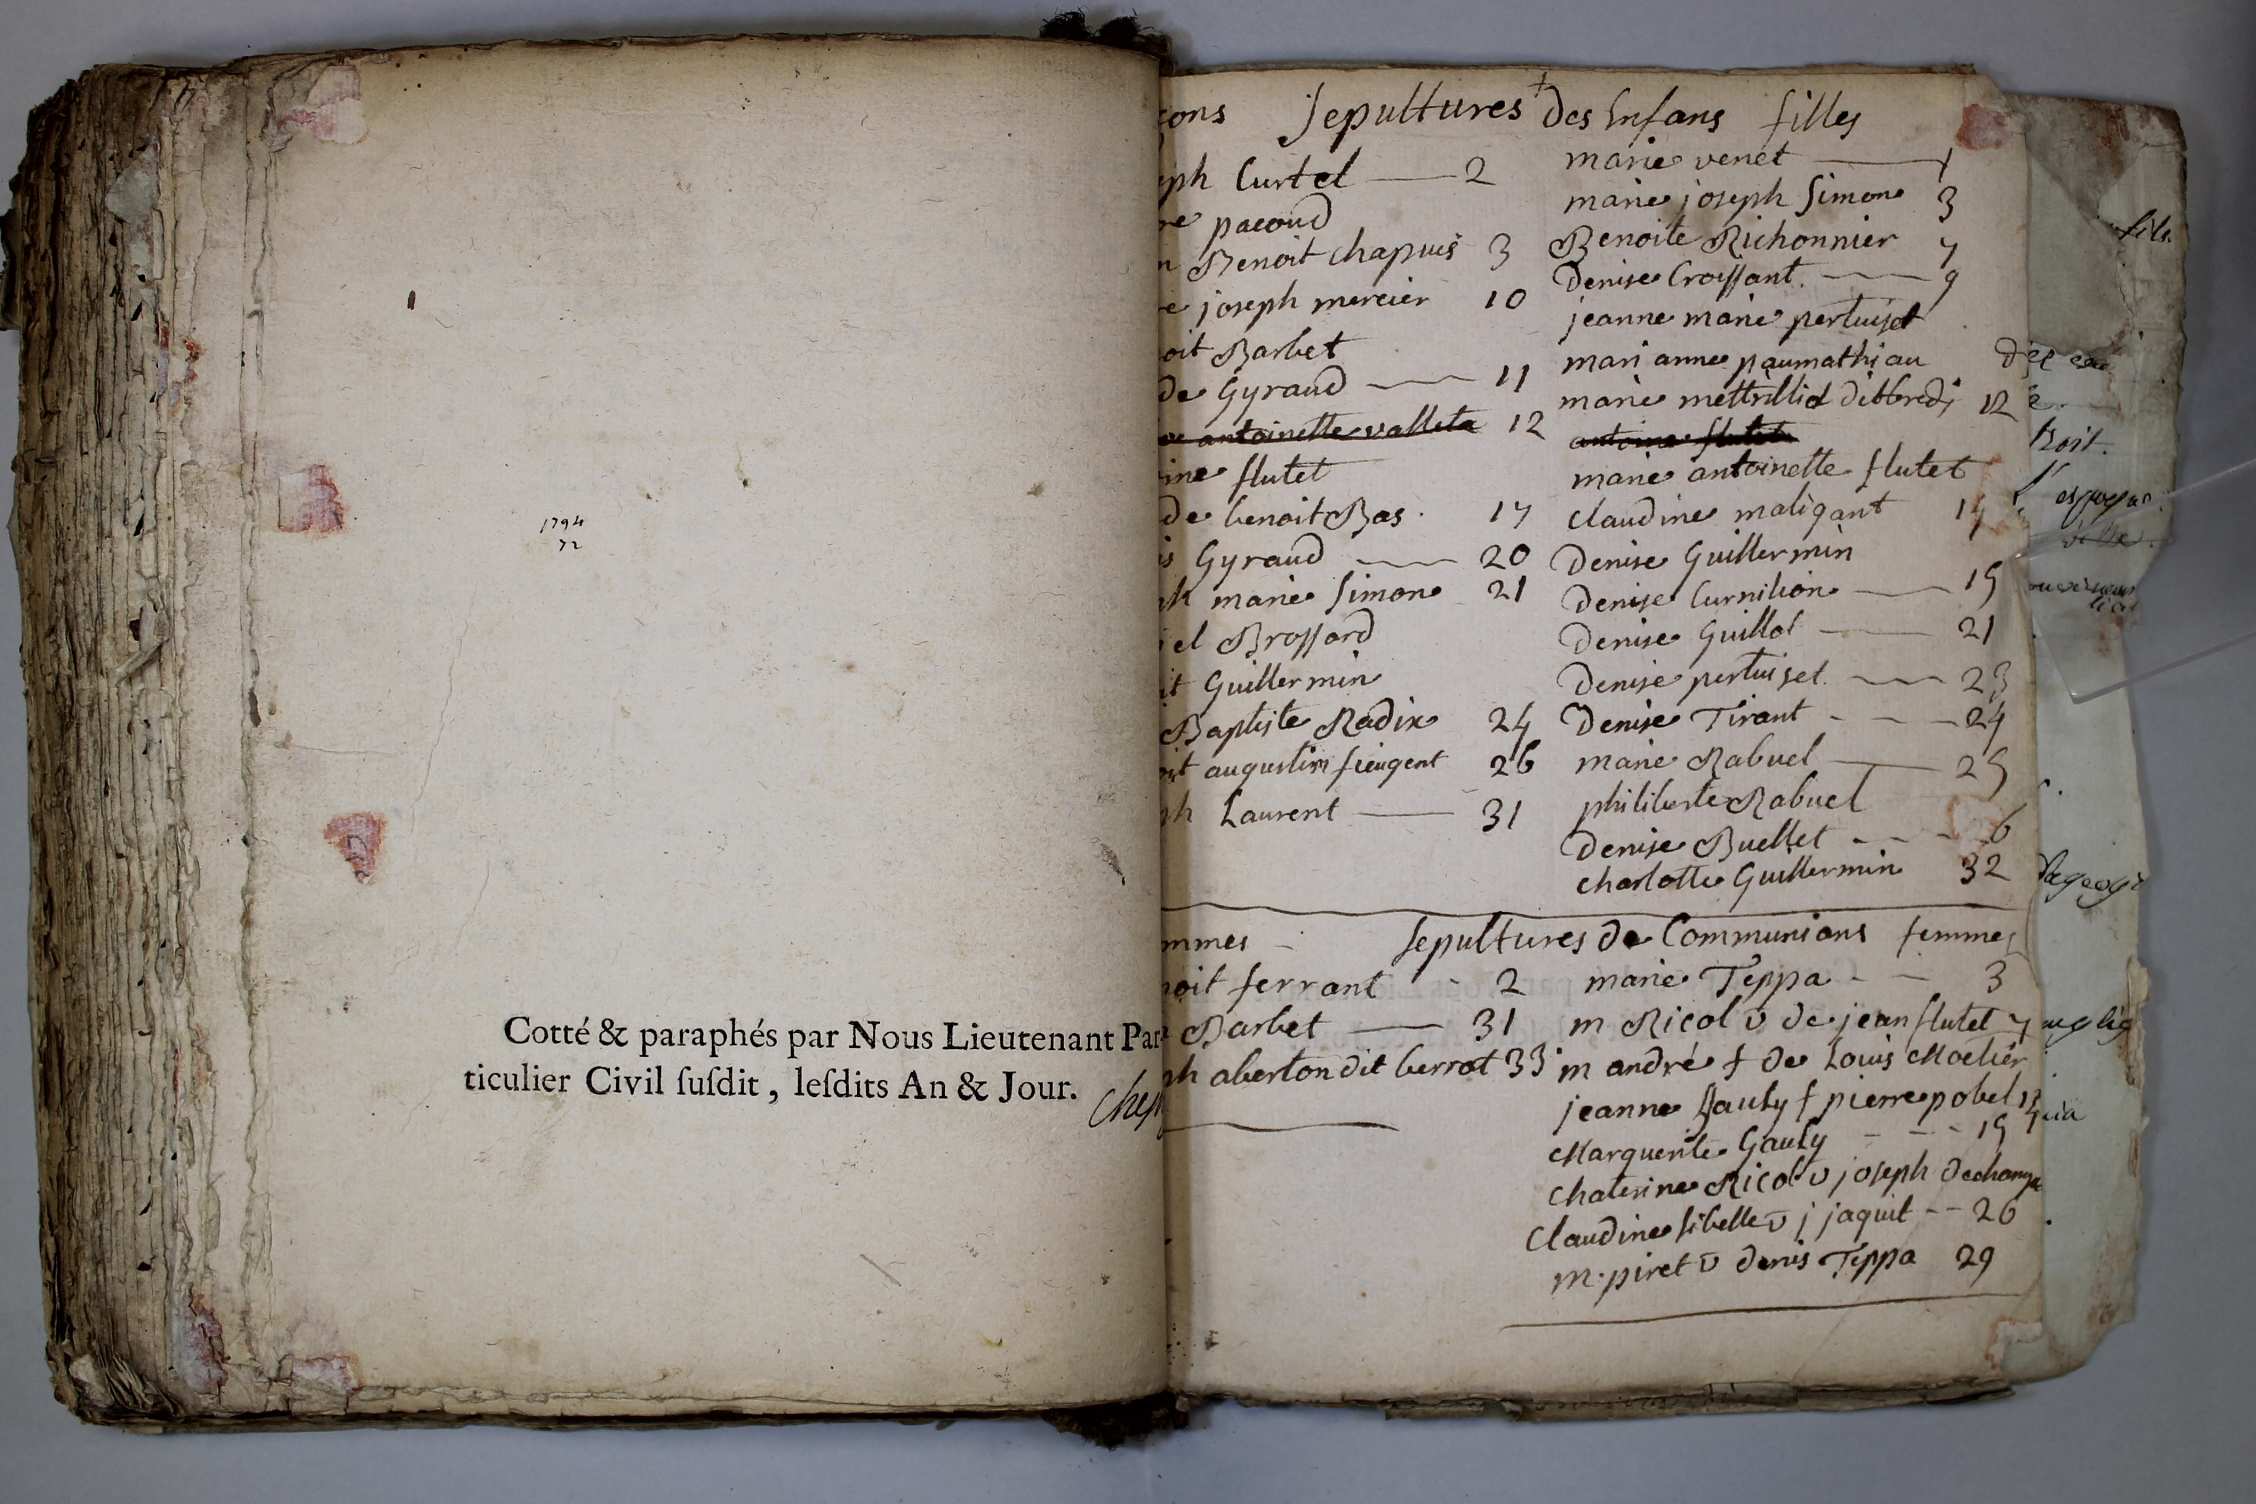 1794
72
Cotté & paraphés par Nous Lieutenant Par-
ticulier Civil ſuſdit, leſdits An & Jour.
çons Sepultures des Enfans filles
eph Curtel 2
re pacoud
n Benoit chapuis 3
re joseph mercier 10
oit Barbet
de Gyraud 11
antoinette valleta 12
ine flutet
de benoit Bas 17
is Gyraud 20
ph marie Simon 21
el Brossard
it Guillermin
Baptiste Radix 24
oit augustin fieugent 26
ph Laurent 31
marie venet 1
marie joseph Simon 3
Benoite Richonnier 7
Denise Croissant 9
jeanne marie pertuiset
mari anne paumathiau
marie 12
antoine flutet
marie antoinette flutet
claudine maligant
Denise Guillermin
Denise Curnilion 19
Denise Guillot 21
Denise pertuiset 23
Denise Tirant 24
marie Rabuel 25
philiberte Rabuel
Denise Buellet 6
charlotte Guillermin 32
mmes
Sepultures de Communions femmes
noit ferrant 2
Barbet 31
ph aberton dit berrot 33
marie Teppa 3
m Ricol v de jean flutet 7
m andré f de Louis Moelier
jeanne Gauly f pierre pobel 13
Marguerite Gauly 19
Chaterine Ricol v joseph
Claudine sibelle v j jaquit 26
m. piret v denis Teppa 29